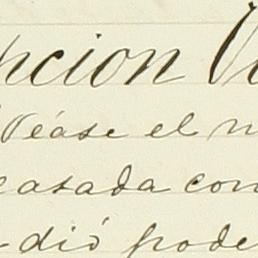 pcion V
Véase el n
casada con
dió pode